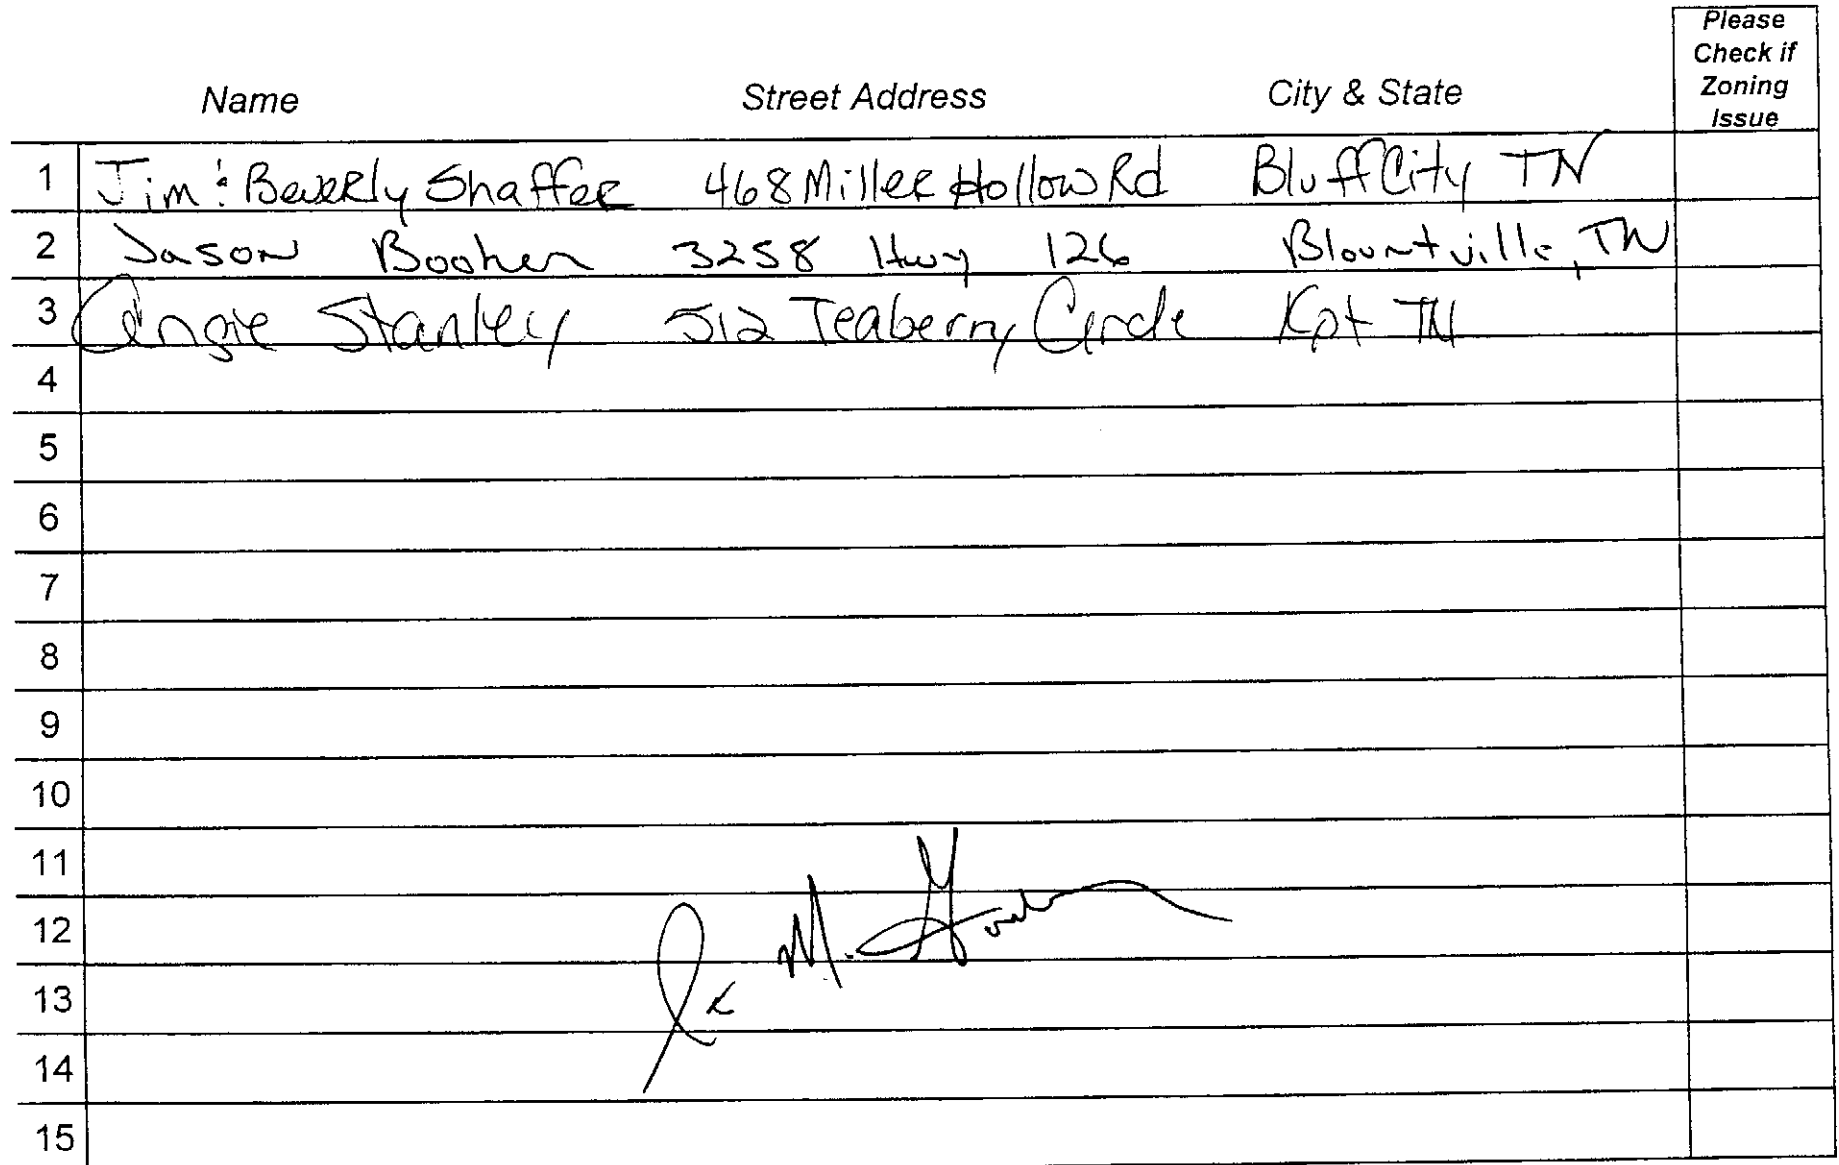 Name Street Address City & State Please Check if Zoning Issue
1 Jim & Beverly Shaffer 468 Miller Hollow Rd Bluff City TN
2 Jason Booher 3258 Hwy 126 Blountville, TN
3 Angie Stanley 512 Teaberry Circle Kpt TN
4
5
6
7
8
9
10
11
12
13
14
15